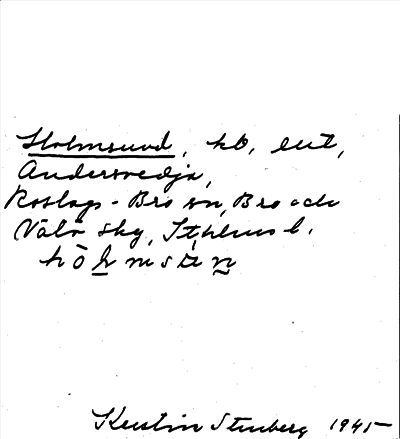 Holmsund, hb, ent,
Andersvedja,
Roslags-Bro sn, Bro och
Vätö skg, Sthlms l.
hòl̲mstèn̰
Kerstin Stenberg 1945